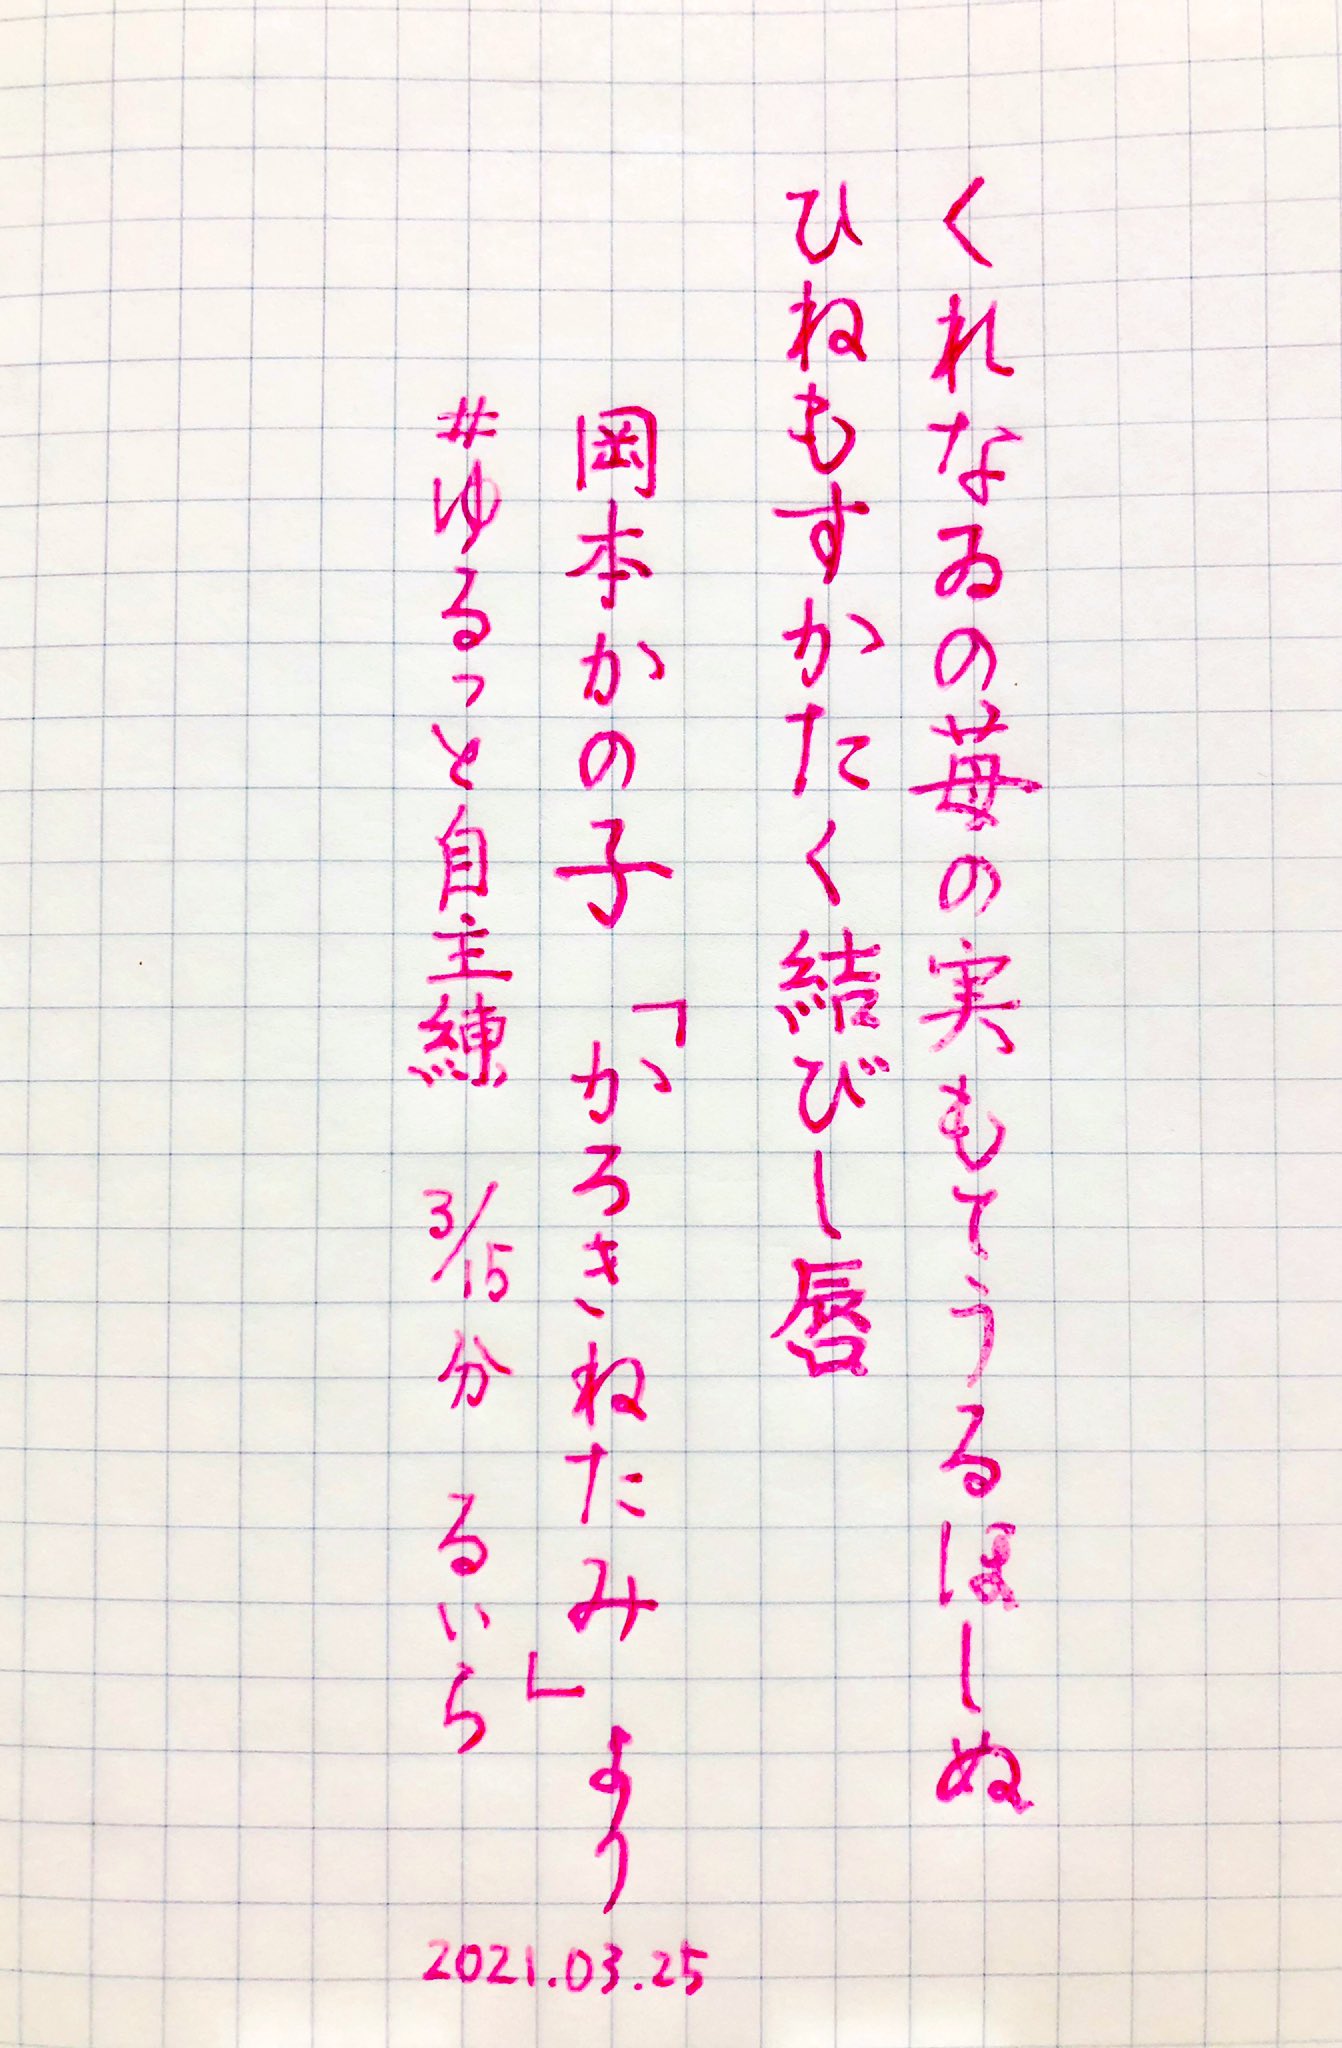 くれなゐの苺の実もてうるほしぬ
ひねもすかたく結びし唇
岡本かの子「かろきねたみ」より
#ゆるっと自主練 3/15分 るいら
2021.03.25